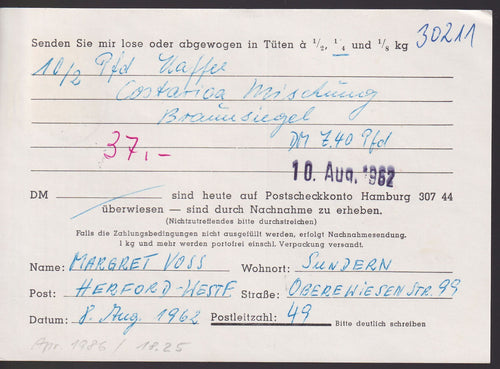 30211
Senden Sie mir lose oder abgewogen in Tüten à 1/2, 1/4 und 1/8 kg
10/2 Pfd Kaffee
Costarica Mischung
Braunsiegel
DM 7.40 Pfd
37,-
10. Aug. 1962
DM sind heute auf Postscheckkonto Hamburg 307 44
überwiesen — sind durch Nachnahme zu erheben.
(Nichtzutreffendes bitte durchstreichen)
Falls die Zahlungsbedingungen nicht ausgefüllt werden, erfolgt Nachnahmesendung.
1 kg und mehr werden portofrei einschl. Verpackung versandt.
Name: MARGRET VOSS Wohnort: SUNDERN
Post: HERFORD-WESTF Straße: OBEREWIESENSTR. 99
Datum: 8. Aug. 1962 Postleitzahl: 49 Bitte deutlich schreiben
Apr. 1986 / 18.25